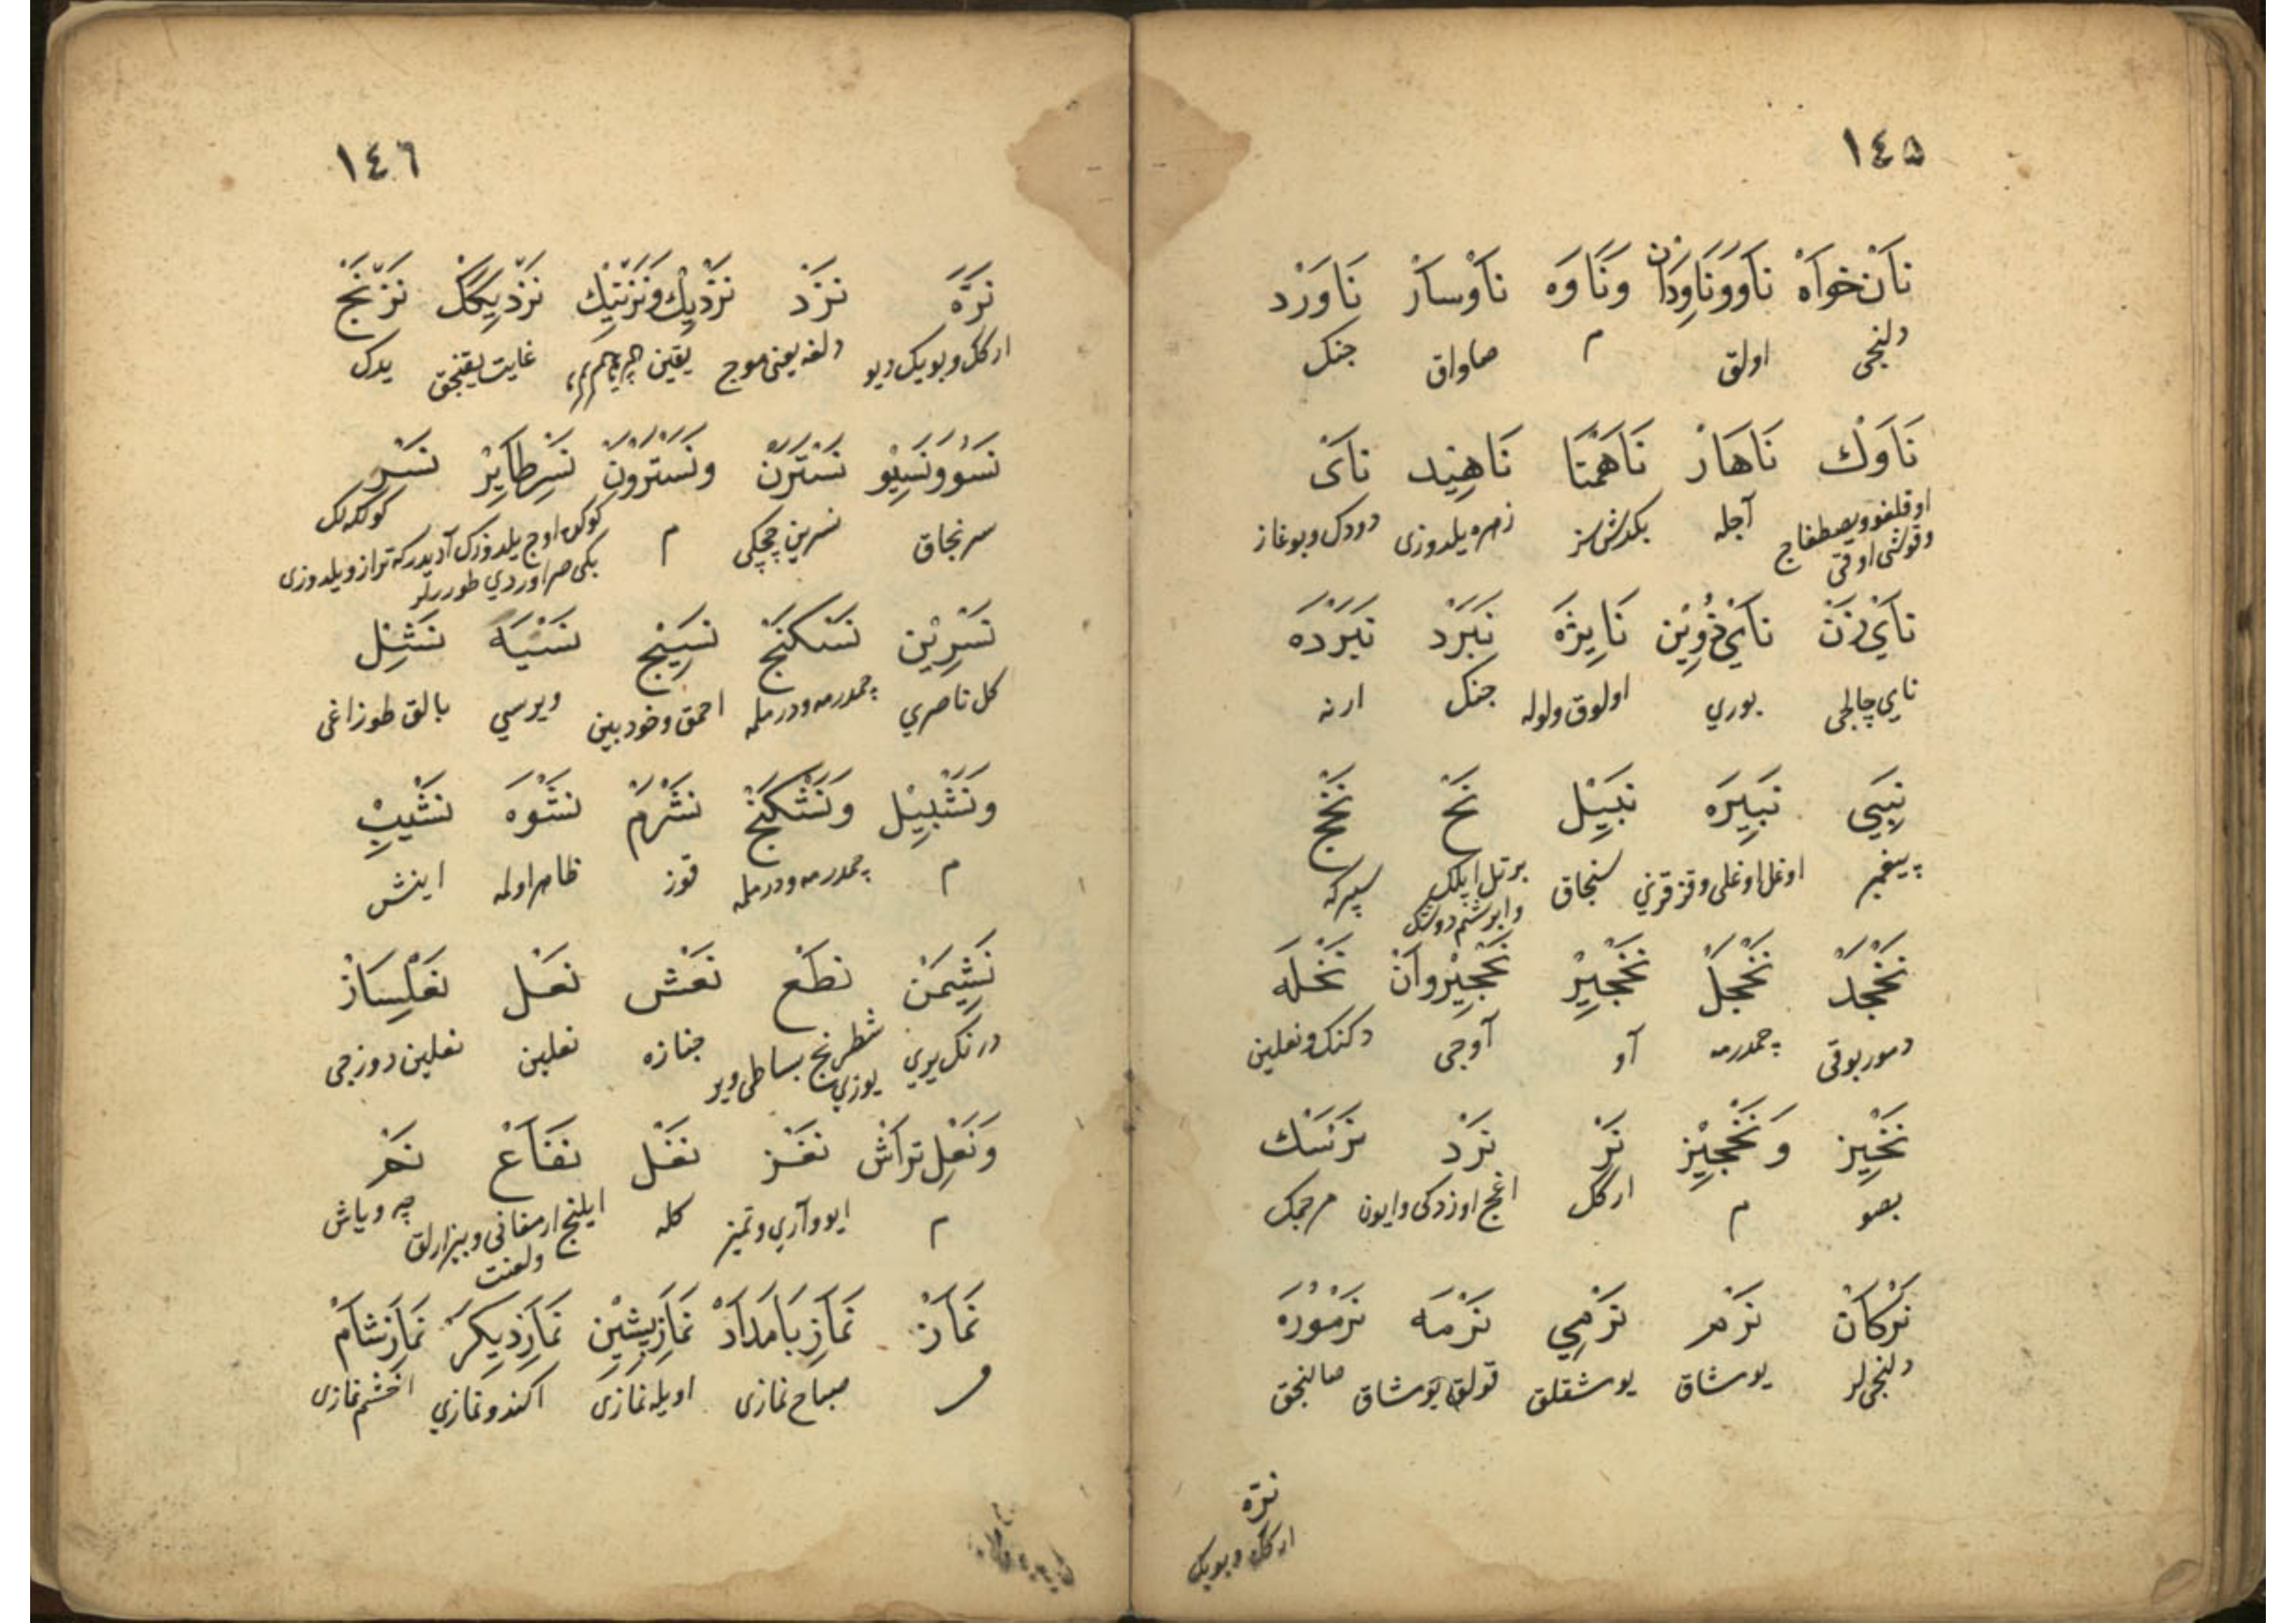 ١٤٥
نَانْخوَاهْ نَاوَوْنَاوِدَانْ وَنَاوَه نَاوْسَارْ نَاوَرْد
دلنجى اولق م صاواق جنك
نَاوَكْ نَاهَارْ نَاهَمْتَا نَاهِيْد نَاىْ
اوقلغو وبصطغاج وقوشى اوقى آجله بكدشسز زهره يلدوزى دودك وبوغاز
نَايْ زَنْ نَايْ رُويِيْن نَايِزَه نَبَرْد نَبَرْدَه
ناى چالجى بوري اولوق ولوله جنك ارنه
نَبِي نَبِيرَه نَبِيْل نَخْ نَخْجْ
پيغمبر اوغل اوغلى وقز قزني سنجاق برتل ايپلك وابرشم دوشك سپركه
نَخْجَدْ نَخْجَلْ نَخْجِيْرْ نَخْجِيْروَانْ نَخْلَه
دمور بوقى چمدرمه آو آوجى دكنك ونعلين
نَخِيْز وَنَخْجِيْز نَرْ نَرْد نَرْسَك
بصو م اركك اغج اوزدكى وايون مرجمك
نَرْكَانْ نَرْم نَرْمِي نَرْمَه نَرْمُورَه
دلنجى لر يوشاق يوشقلق قولق يوشاق صالنجق
نرّه
اركك وبويك
١٤٦
نَرَّه نَزْد نَزْدِيْك وَنَزْتِيْك نَزْدِيكَكْ نَزَنْج
اركك وبويك ديو دلغه يعنى موج يقين غايت يقنجق يدك
نَسُوْ وَنَسِيْو نَسْتَرَنْ وَنَسْتَرْوَنْ نَسْرِطَايِرْ نَسْر
سرنجاق نسرين چچكى م كولكه لك
نَسْرِيْن نَسَكَنْج نَسِيْنِج نَسْيَه نَشْبِل
كل ناصري چمدرمه ودرمله احمق وخود بين ويرسي بالق طوزاغى
وَنَشْبِيْل وَنَشْكَنْج نَشَرْم نَشْوَه نَشْيِبْ
م چمدرمه ودرمله قوز ظاهر اولمه اينش
نَشِيْمَنْ نَطْع نَعْش نَعْل نَعْلِسَازْ
درنك يري شطرنج بساطى ويريوزي جنازه نعلين نعلين دوزجى
وَنَعْل تَرَاشْ نَغْز نَغْل نَفَاعْ نَمْر
م ايو وآري وتميز كله ايلنج ارمغانى وبيزارلق ولعنت چه وياش
نَمَازْ نَمَازِ بَامْدَادْ نَمَازِ پِيْشِيْن نَمَازِدِيكَرْ نَمَازِشَامْ
م صباح نمازى اويله نمازى اكندو نمازي اخشم نمازى